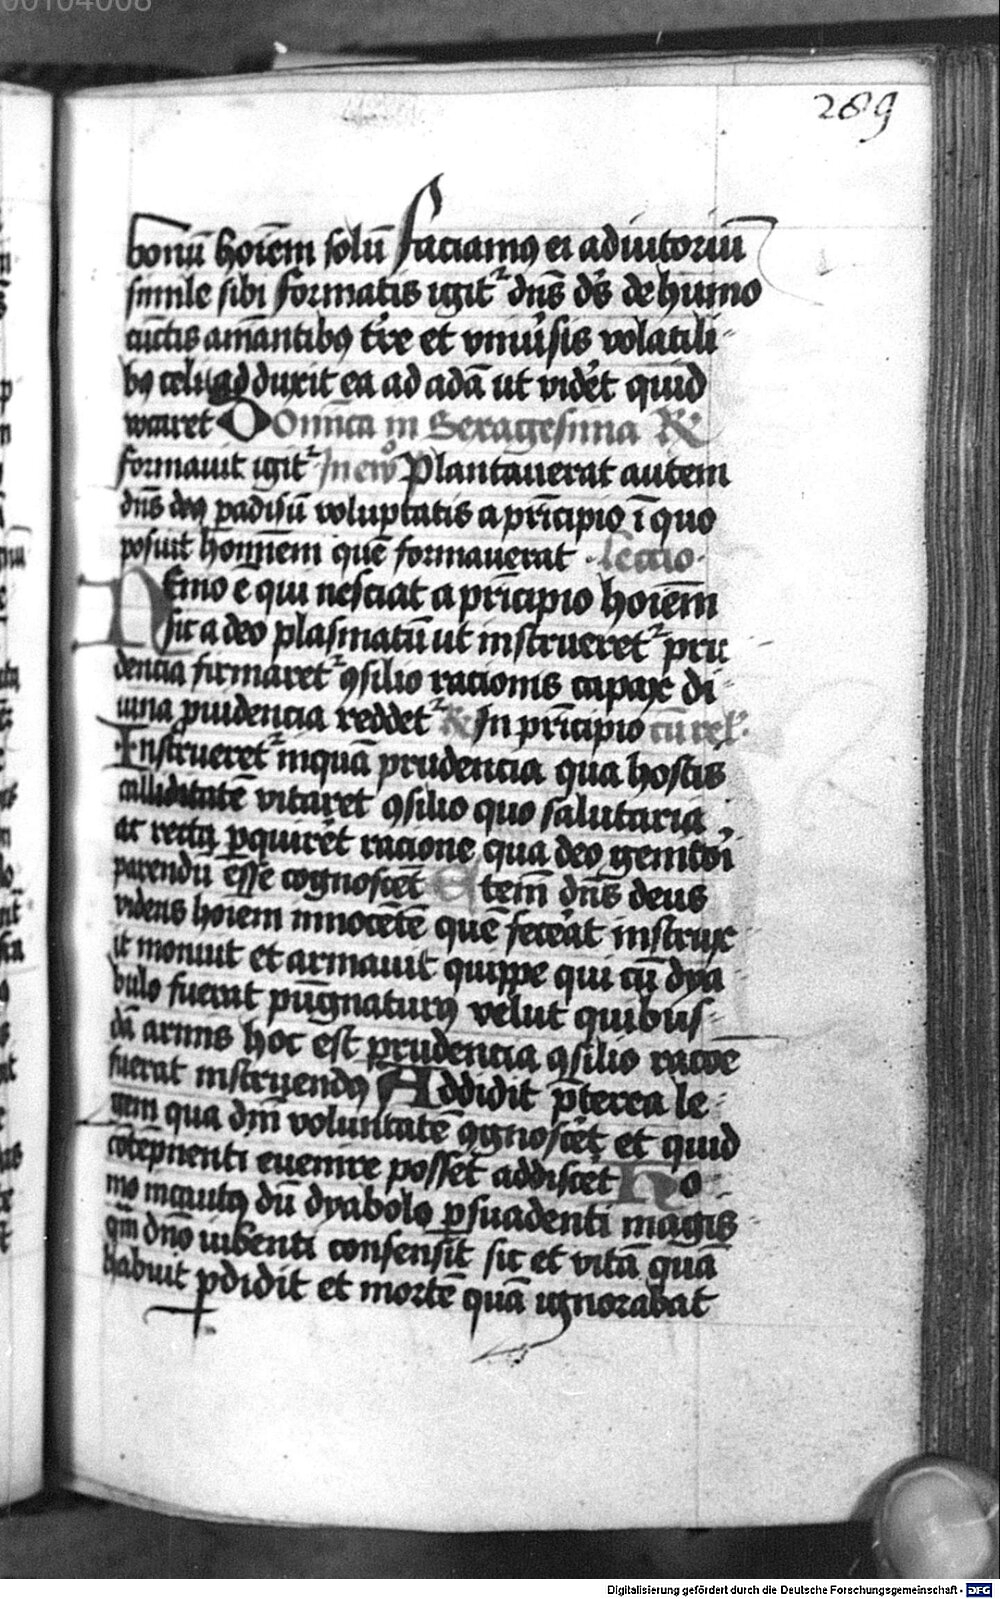 00104008
289
bonū hoīem solū faciamꝰ ei adiutoriū
simile sibi formatis igitᷣ dn̄s ds̄ de humo
cūctis amantibꝰ tr̄e et vniūsis volatili
bꝫ celi ad duxit ea ad adā ut vidēt quid
vocaret Domīca in Sexagesima ℟
formauit igitᷣ In euō Plantauerat autem
dn̄s deꝰ padisū voluptatis a prīcipio ī quo
posuit hominem quē formauerat Leccio
Nemo ē qui nesciat a prīcipio hoīem
sic a deo plasmatū ut instrueretᷣ pru
dencia firmaretᷣ ꝯsilio racionis capax di
uina ꝓuidencia reddetᷣ ℟ In prīcipio cū rel.
Instrueretᷣ inquā prudencia qua hostis
calliditatē vitaret ꝯsilio quo salutaria
ac recta ꝑquirēt racione qua deo
parendū esse cognoscēt tem̄ dn̄s deus
videns hoīem innocētē quē fecēat instrux
it monuit et armauit quippe qui cū dya
bulo fuerat pugnaturꝰ velut quibus
dā armis hoc est prudencia ꝯsilio racōe
fuerat instruendꝰ Addidit p̄terea le
gem qua dn̄i voluntatē ꝯgnoscēt et quid
cōtēpnenti euenire possēt addiscēt Ho
mo inquitꝰ dū dyabolo ꝑsuadenti magis
qm̄ dn̄o iubenti consensit sic et vitā quā
habuit ꝑdidit et mortē quā ignorabat
Digitalisierung gefördert durch die Deutsche Forschungsgemeinschaft - DFG